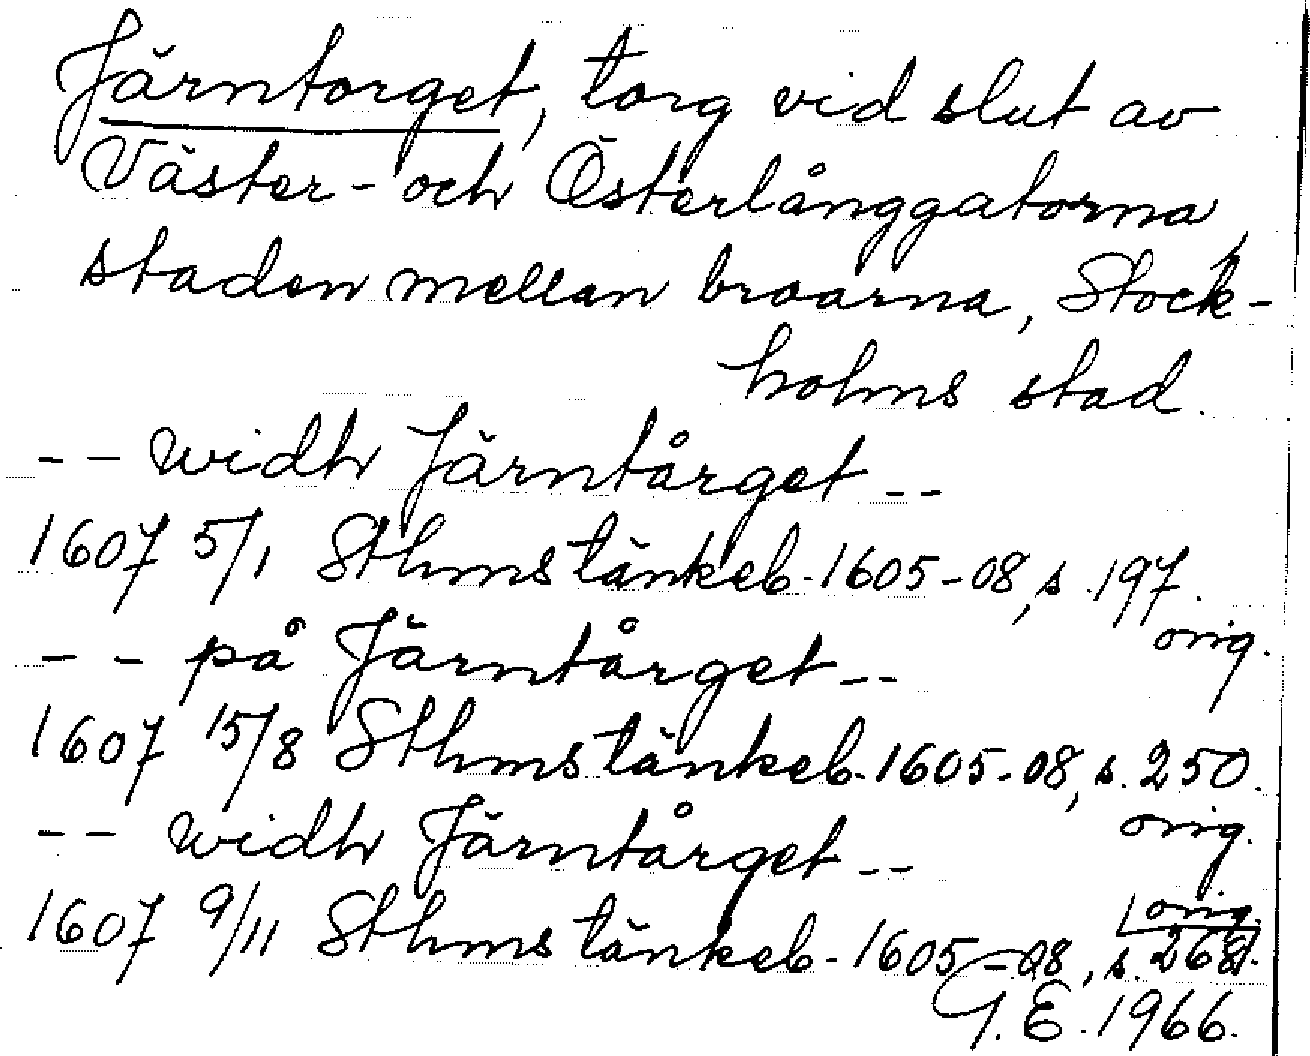 Järntorget, torg vid slut av
Väster- och Österlånggatorna,
staden mellan broarna, Stock-
holms stad.
-- widh Järntårget --
1607 5/1 Sthms tänkeb. 1605-08, s. 197.
orig.
-- på Järntårget --
1607 15/8 Sthms tänkeb. 1605-08, s. 250.
orig.
-- widh Järntårget --
orig.
1607 9/11 Sthms tänkeb. 1605-08, s. 268.
G. E. 1966.